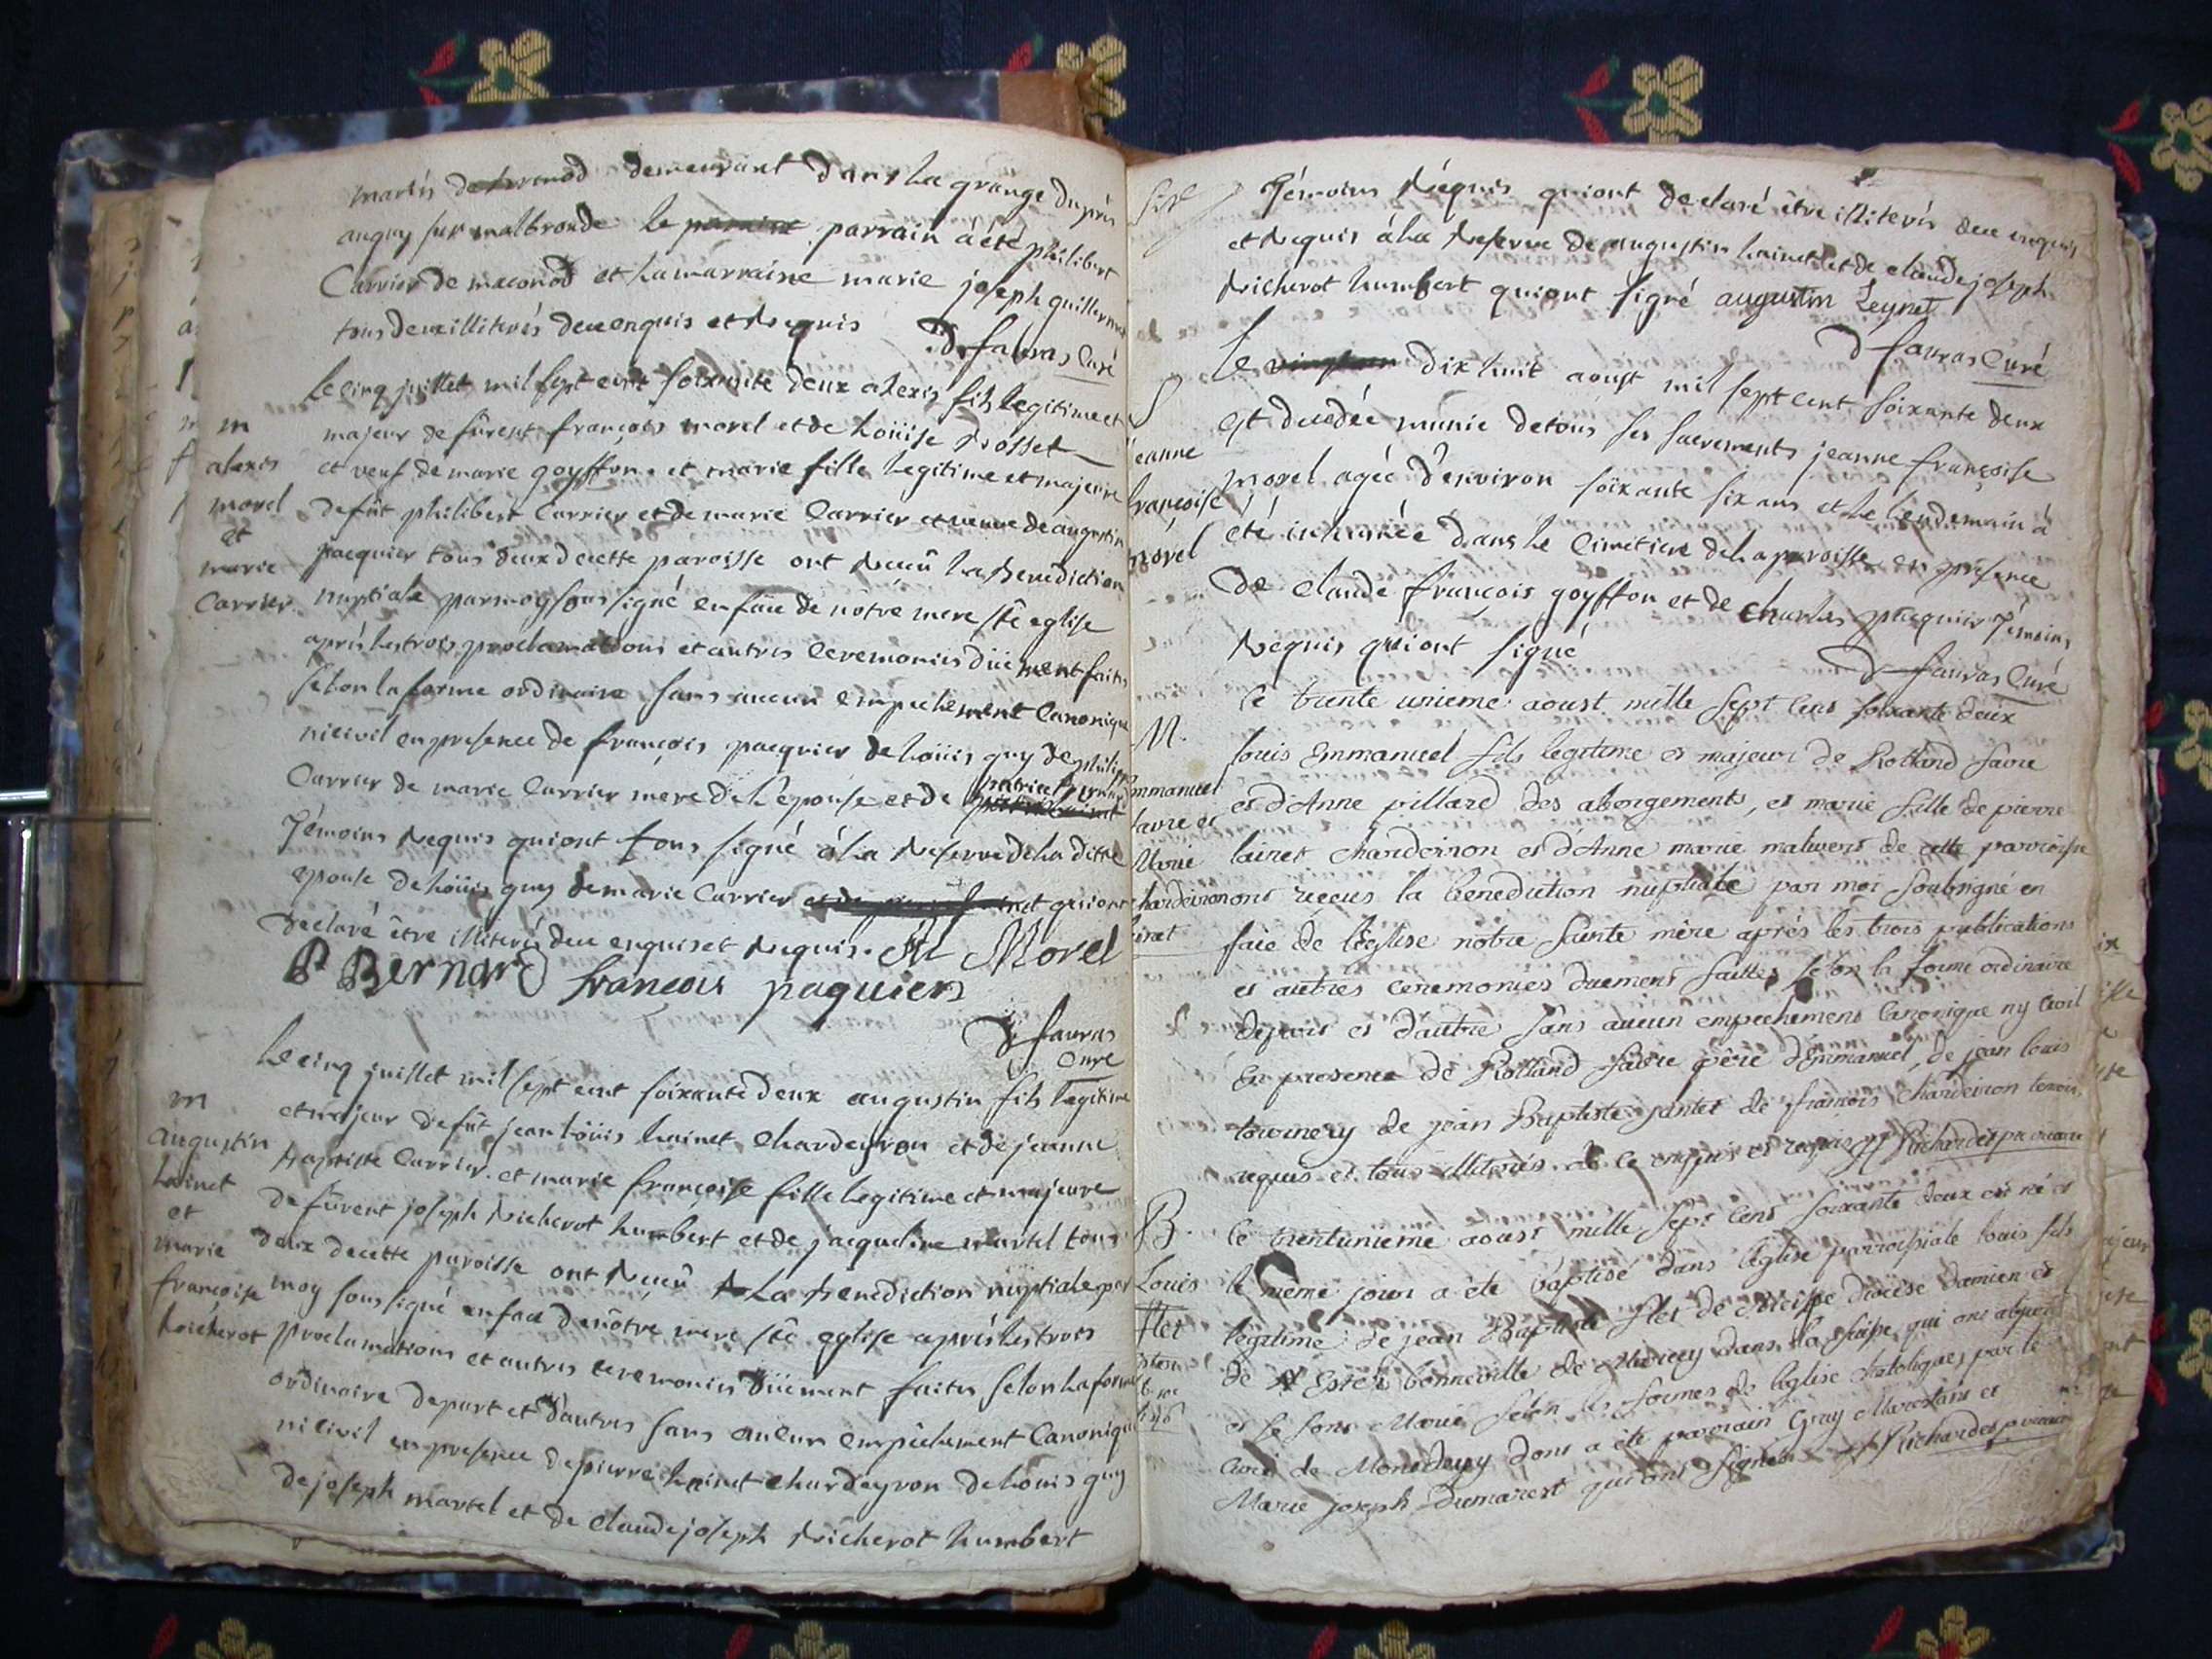 mariés de demeurant dans la grange du prés
auguy sur malbronde le parrain à été philibert
Carrier de maconod et la marraine marie joseph guillermet
tous deux illiterés deue enquis et requis D. favras Curé
m
alexis
morel
et
marie
Carrier
Le cinq juillet mil sept cent soixante deux alexis fils legitime et
majeur de fûrent françois morel et de Loüise Rosset
et veuf de marie goyffon. et marie fille legitime et majeure
de fût philibert Carrier et de marie Carrier et veuve de augustin
pacquier tous deux de cette paroisse ont reçeu la benediction
nuptiale par moy sous signé en face de nôtre mere ste eglise
aprés les trois proclamations et autres ceremonies düement faites
selon la forme ordinaire sans aucun empechement canonique
ni civil en presence de françois pacquier de Loüis guy de philippe
Carrier de marie Carrier mere de l'epouse et de
Témoins requis qui ont tous signé à la reserve de la ditte
epouse de Loüis guy de marie Carrier qui ont
declaré être illiterés deue enquis et requis. Al Morel
P Bernard françois paquiers
D favras
Curé
m
augustin
Lainet
et
marie
françoise
Richerot
Le cinq juillet mil sept cent soixante deux augustin fils legitime
et majeur de fût jean Loüis Lainet Chardeyron et de jeanne
baptiste Carrier. et marie françoise fille legitime et majeure
de fûrent joseph Richerot humbert et de jacqueline martel tous
deux de cette paroisse ont reçeu la benediction nuptiale par
moy sous signé en face de nôtre mere ste eglise aprés les trois
proclamations et autres ceremonies düement faites selon la forme
ordinaire depart et d'autres sans aucun empêchement Canonique
ni civil en presence de pierre Lainet chardeyron de Louis guy
de joseph martel et de claude joseph Richerot humbert
Témoins requis qui ont declaré être illiterés deue enquis
et requis à la reserve de augustin Lainet et de claude joseph
Richerot humbert qui ont signé augustin Leynet
D favras Curé
S
jeanne
françoise
morel
Le dix huit aoust mil sept cent soixante deux
est decedée munie de tous ses sacrements jeanne françoise
morel agée d'environ soixante six ans et le lendemain à
été inhumée dans le cimetiere de la paroisse en presence
de claude françois goyffon et de charles pacquier Témoins
requis qui ont signé
D favras Curé
M.
Emmanuel
favre et
Marie
chardeiron
le trente unieme aoust mille sept cens soixante deux
louis Emmanuel fils legitime et majeur de Rolland favre
et d'Anne pillard des abergements, et marie fille de pierre
lainet chardeiron et d'Anne marie de cette parroisse
ont reçeus la benediction nuptiale par moi soubsigné en
face de l'eglise notre sainte mère aprés les trois publications
et autres ceremonies duement faittes selon la forme ordinaire
depart et d'autre sans aucun empechement canonique ny civil
En presence de Rolland favre père d'Emmanuel, de jean louis
tournery de jean Baptiste jantet de francois chardeiron temoins
requis et tous illiterés de ce enquis et requis Richardet pr vicaire
B.
Louis
flet
le trentunieme aoust mille sept cens soixante deux est né et
le même jour a été baptisé dans l'eglise parroissiale louis fils
legitime de jean Baptiste flet de diocèse damien et
de Ester bonneville de dans la suisse qui ont abjuré
et se sont Marié selon les formes de l'eglise chatolique, par le
curé de dont a été parrain Guy et
Marie joseph Dumarest qui ont signés Richardet pr vicaire